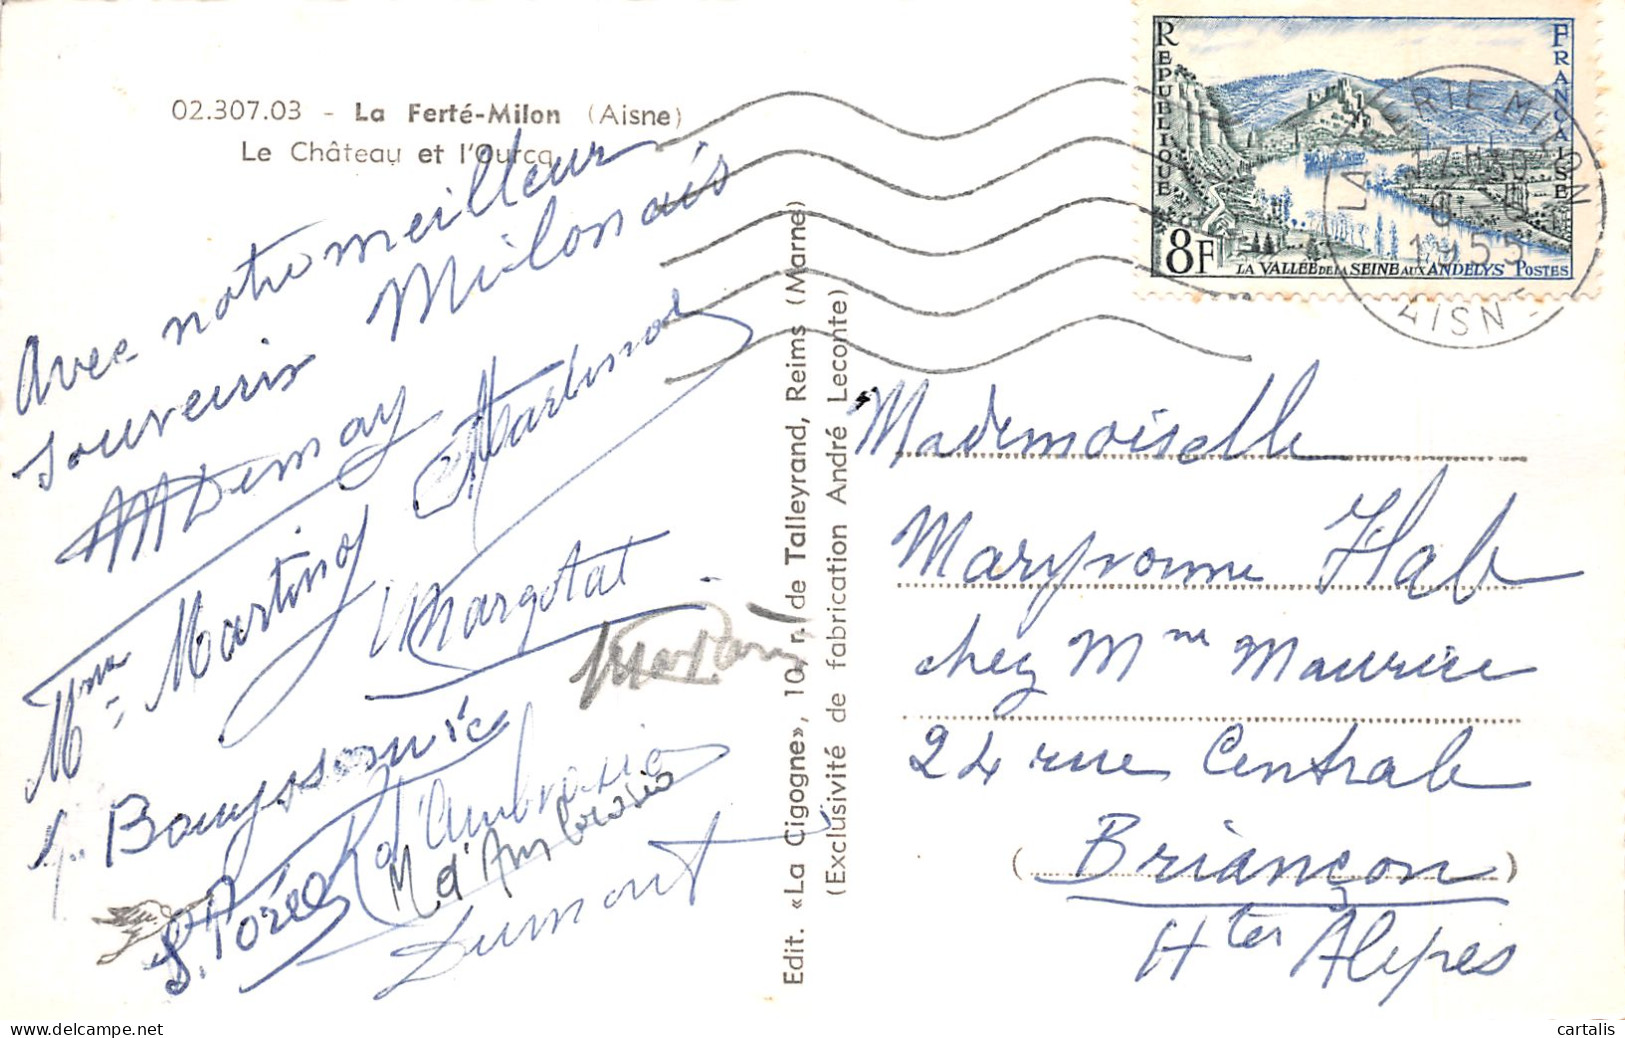 02.307.03 - La Ferté-Milon (Aisne)
Le Château et l'Ourcq
Avec notre meilleur
souvenirs Milonais
Demay
Mme Martinot
Margotat
Bouyssonnie
d'Ambrosio
M d'Ambrosio
Dumont
Edit. «La Cigogne», 10, r. de Talleyrand, Reims (Marne)
(Exclusivité de fabrication André Leconte)
REPUBLIQUE
FRANCAISE
8F
LA VALLEE DE LA SEINE AUX ANDELYS POSTES
1955
AISNE
Mademoiselle
Maryvonne Hab
chez Mme Maurice
24 rue Centrale
(Briançon)
Htes Alpes
cartalis